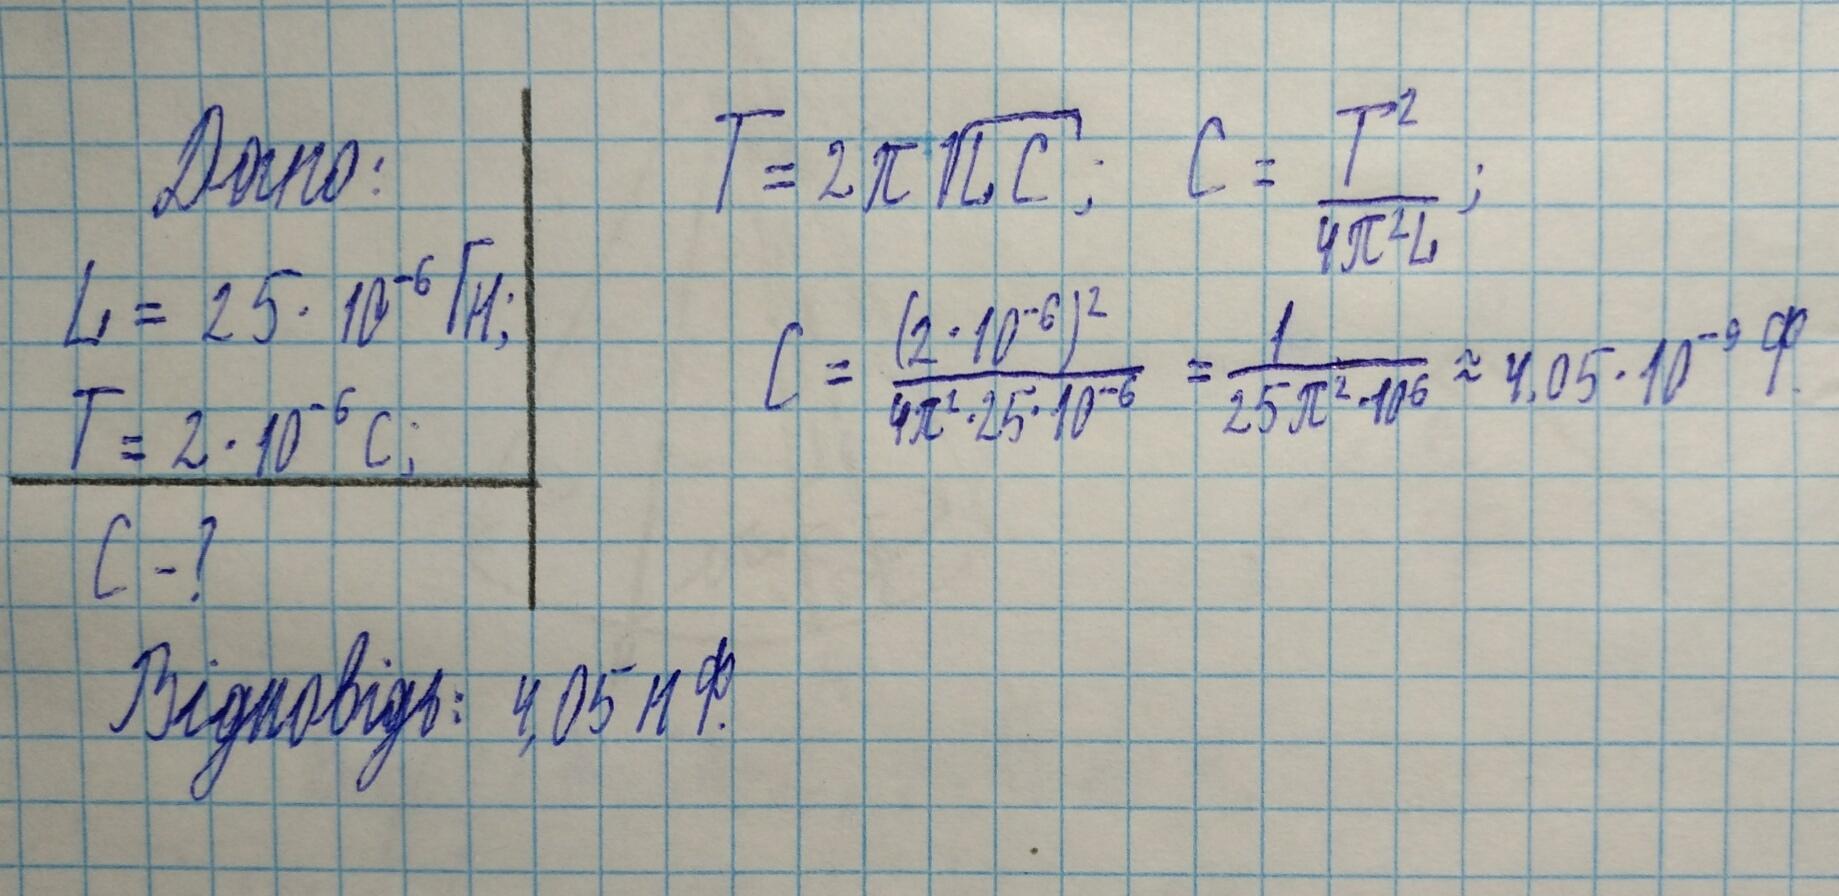 Дано:
L = 25 · 10⁻⁶ Гн;
T = 2 · 10⁻⁶ с;
C - ?
T = 2π√LC; C = T²/4π²L;
C = (2 · 10⁻⁶)²/4π² · 25 · 10⁻⁶ = 1/25π² · 10⁶ ≈ 4,05 · 10⁻⁹ Ф.
Відповідь: 4,05 нФ.